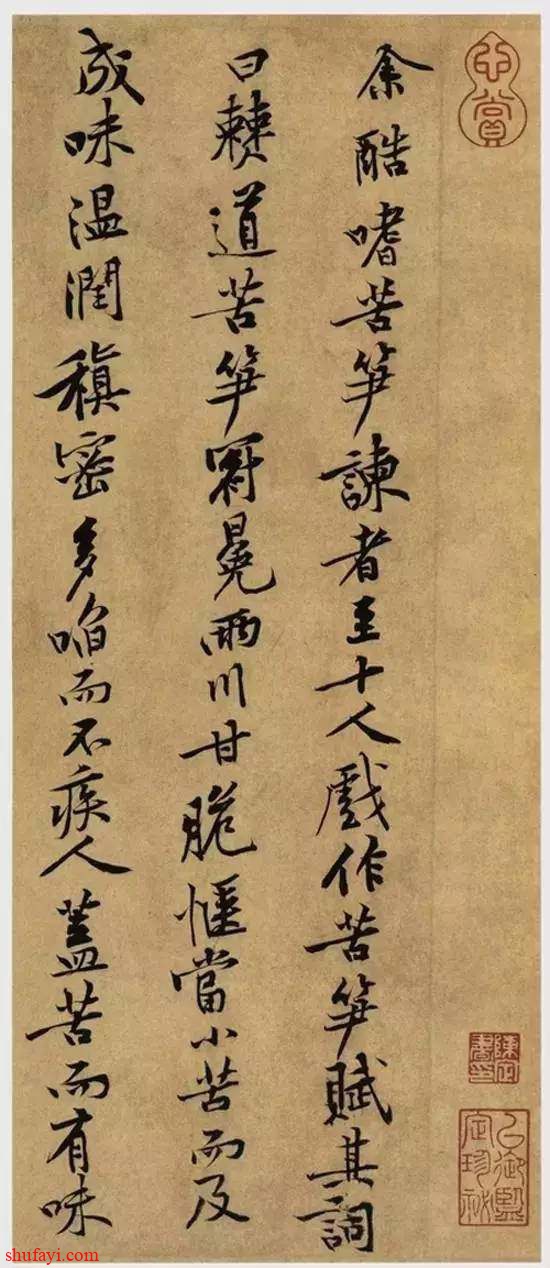 余酷嗜苦笋諫者至十人戲作苦笋賦其詞
曰僰道苦笋冠冕兩川甘脆愜當小苦而及
成味温潤稹密多啗而不疾人蓋苦而有味
shufayi.com